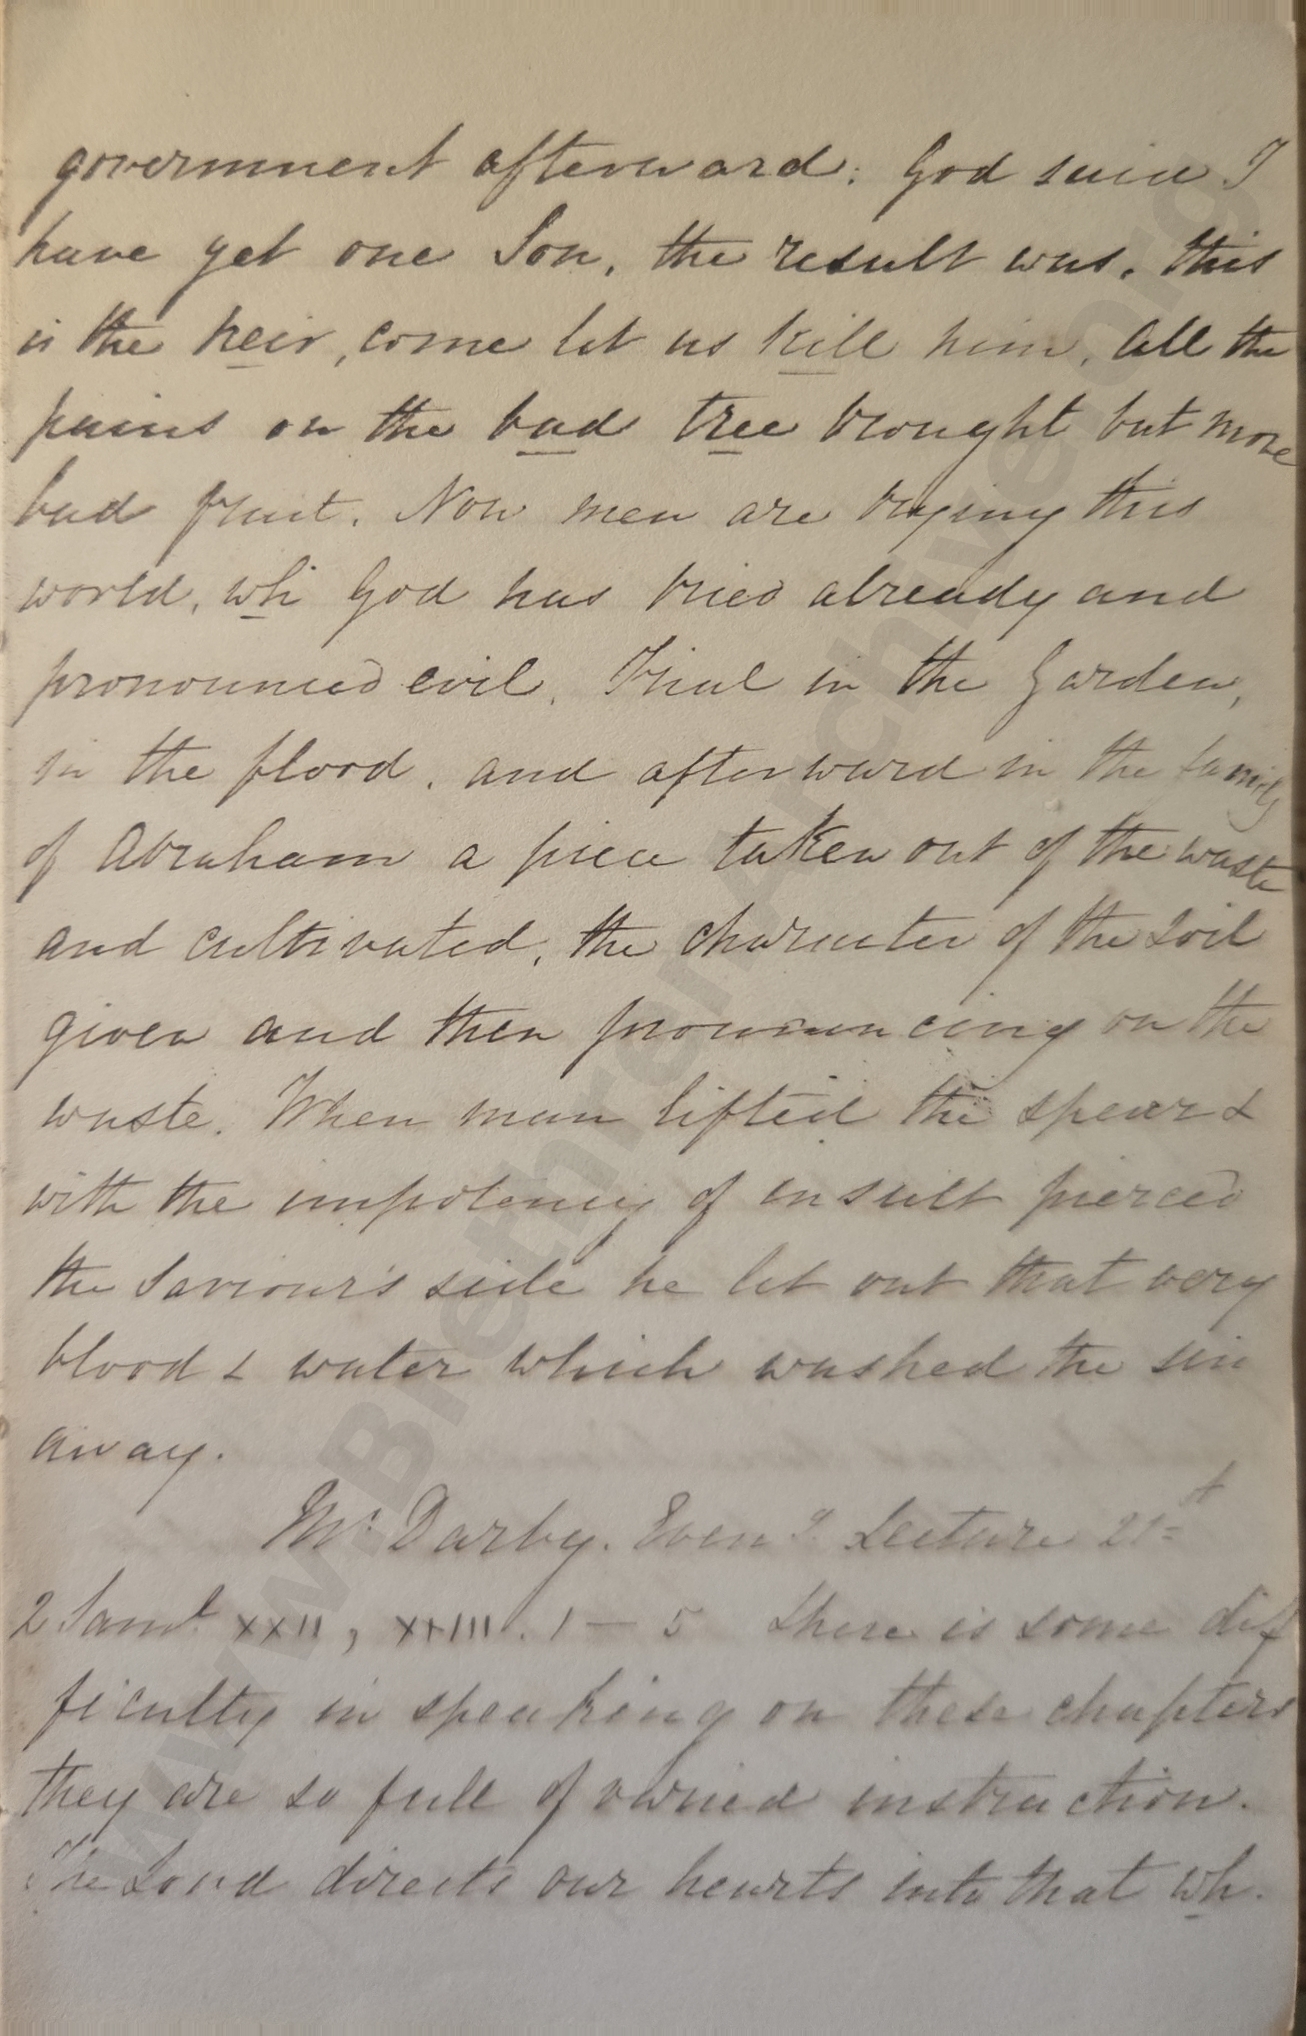 government afterward: God said I
have yet one Son, the result was, this
is the heir, come let us kill him, All the
pains on the bad tree brought but more
bad fruit. Now men are trying this
world, whi God has tried already and
pronounced evil. Trial in the Garden,
in the flood, and afterward in the family
of Abraham a piece taken out of the waste
and cultivated, the character of the soil
given and then pronouncing on the
waste. When man lifted the spear &
with the impotency of insult pierced
the Saviour's side he let out that very
blood & water which washed the sin
away.
Mr. Darby. Eveng. Lecture 21st
2 Saml. XXII, XXIII. 1 – 5 There is some dif
ficulty in speaking on these chapters
they are so full of varied instruction.
The Lord directs our hearts into that wh.
www.BrethrenArchive.org